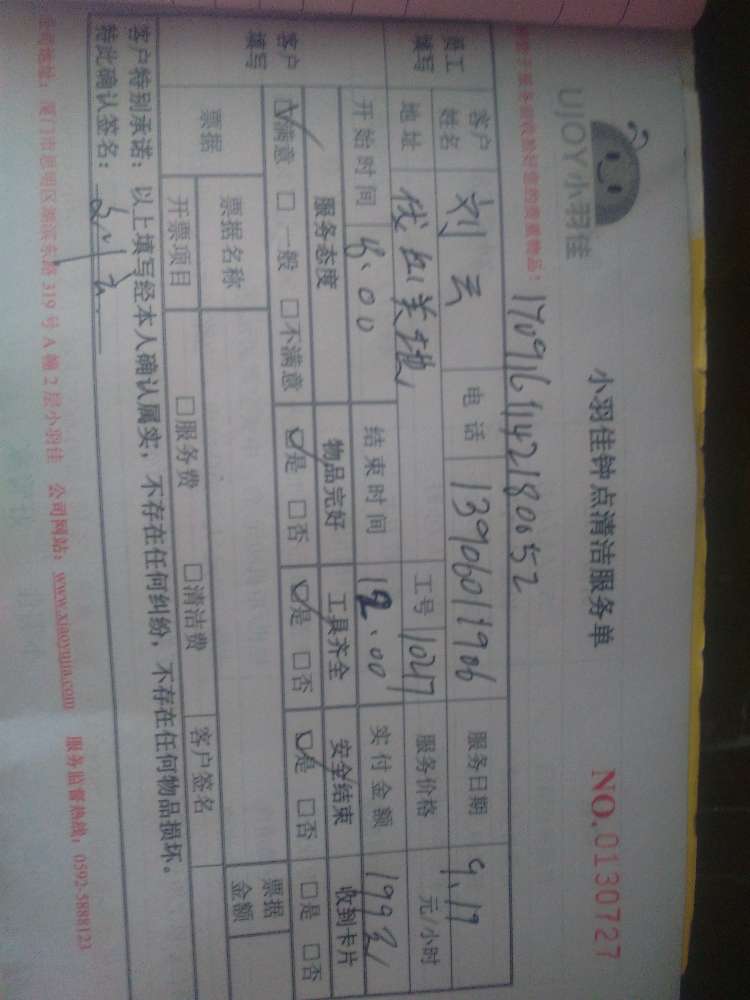 UJOY小羽佳
小羽佳钟点清洁服务单
NO.0130727
员工填写
客户姓名 刘云 电话 13906011906 服务日期 9.19
地址 工号 1047 服务价格 元/小时
开始时间 结束时间 12.00 实付金额
客户填写
服务态度 物品完好 工具齐全 安全结束 收到卡片
☑满意 □一般 □不满意 ☑是 □否 ☑是 □否 ☑是 □否 □是 □否
票据 票据名称 票据金额
开票项目 □服务费 □清洁费 客户签名
客户特别承诺：以上填写经本人确认属实，不存在任何纠纷，不存在任何物品损坏。
特此确认签名：刘云
公司地址：厦门市思明区湖滨东路 319 号 A 幢 2 层小羽佳 公司网站：www.xiaoyujia.com 服务监督热线：0592-5888123